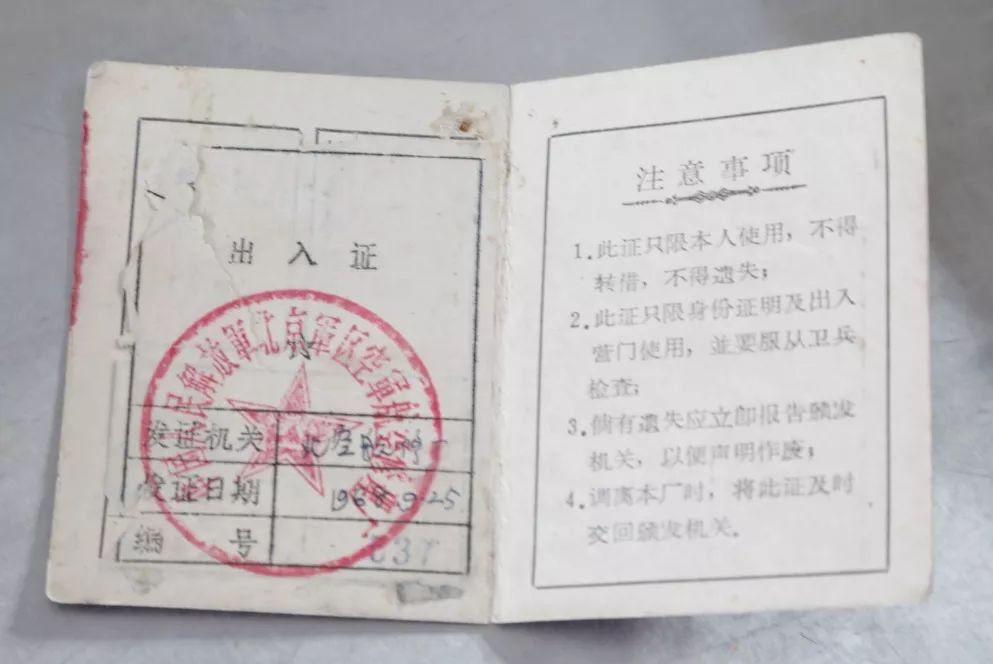 出入证
发证机关
发证日期 1968.9.25
编号 037
注意事项
1.此证只限本人使用，不得
转借，不得遗失；
2.此证只限身份证明及出入
营门使用，並要服从卫兵
检查；
3.倘有遗失应立即报告颁发
机关，以便声明作废；
4.调离本厂时，将此证及时
交回颁发机关.